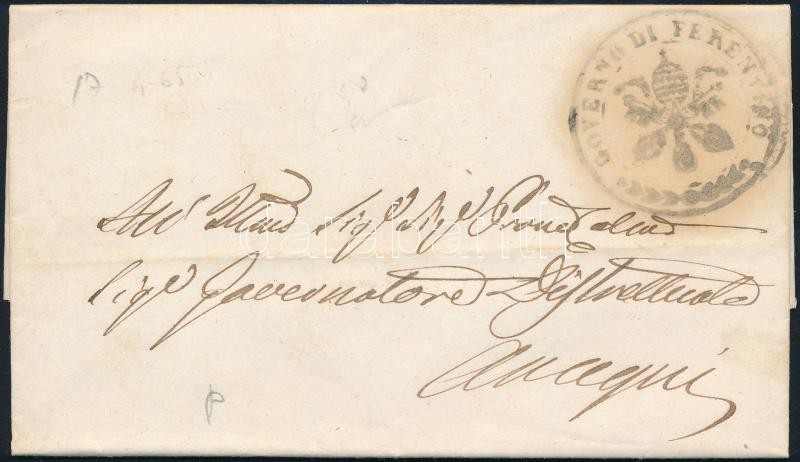 GOVERNO DI FERENTINO
All' Illmo Sigr
Sigr Governatore Distrettuale
Anagni
darabanth